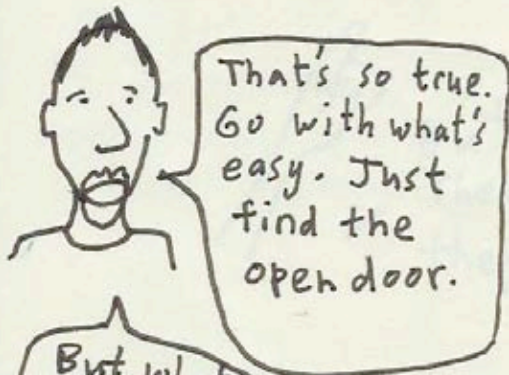 That's so true.
Go with what's
easy. Just
find the
open door.
But